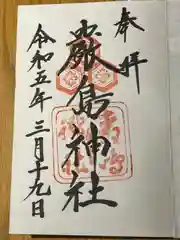 奉拝
厳島神社
令和五年三月十九日